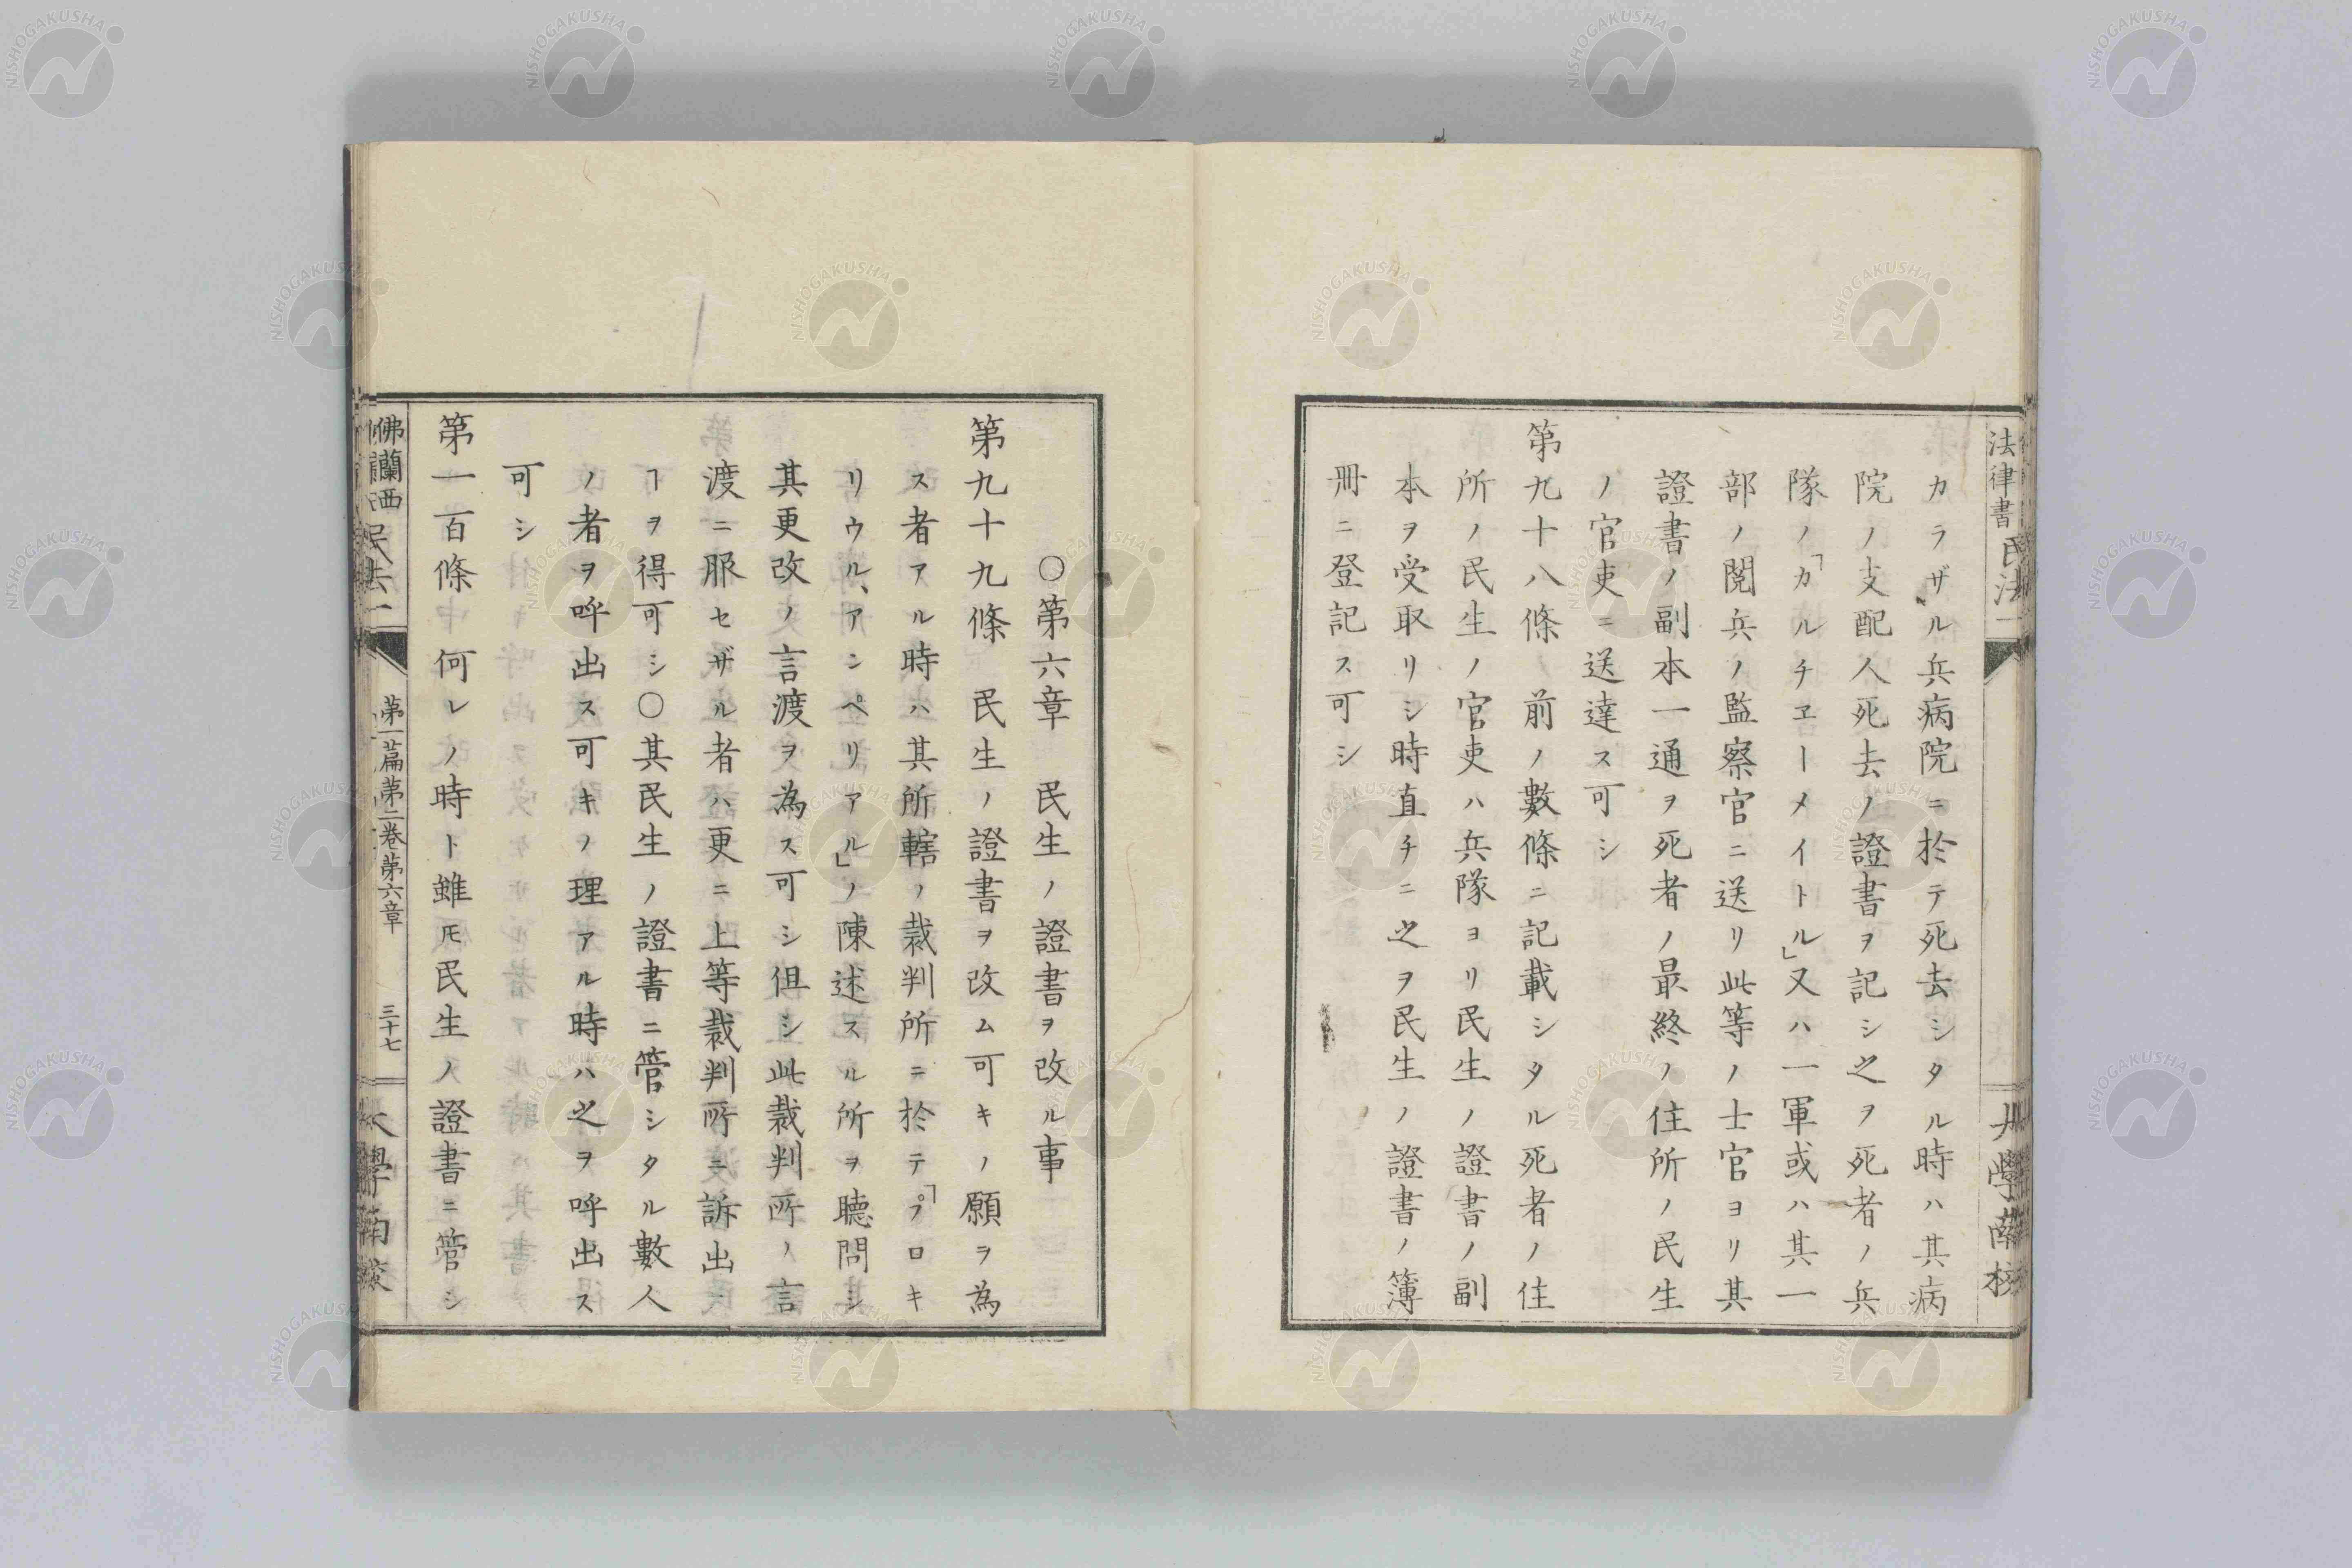 カラザル兵病院ニ於テ死去シタル時ハ其病
院ノ支配人死去ノ證書ヲ記シ之ヲ死者ノ兵
隊ノ「カルチヱーメイトル」又ハ一軍或ハ其一
部ノ閲兵ノ監察官ニ送リ此等ノ士官ヨリ其
證書ノ副本一通ヲ死者ノ最終ノ住所ノ民生
ノ官吏ニ送達ス可シ
第九十八條 前ノ數條ニ記載シタル死者ノ住
所ノ民生ノ官吏ハ兵隊ヨリ民生ノ證書ノ副
本ヲ受取リシ時直チニ之ヲ民生ノ證書ノ簿
冊ニ登記ス可シ
法律書 民法一
大學南校
〇第六章 民生ノ證書ヲ改ル事
第九十九條 民生ノ證書ヲ改ム可キノ願ヲ為
ス者アル時ハ其所轄ノ裁判所ニ於テ「プロキ
リウル、アンペリアル」ノ陳述スル所ヲ聽問シ
其更改ノ言渡ヲ為ス可シ但シ此裁判所ノ言
渡ニ服セザル者ハ更ニ上等裁判所ニ訴出ヿヲ得可シ〇其民生ノ證書ニ管シタル數人
ノ者ヲ呼出ス可キノ理アル時ハ之ヲ呼出ス
可シ
第一百條 何レノ時ト雖𪜈民生ノ證書ニ管シ
佛蘭西民法一
第一篇第二卷第六章
三十七
NISHOGAKUSHA